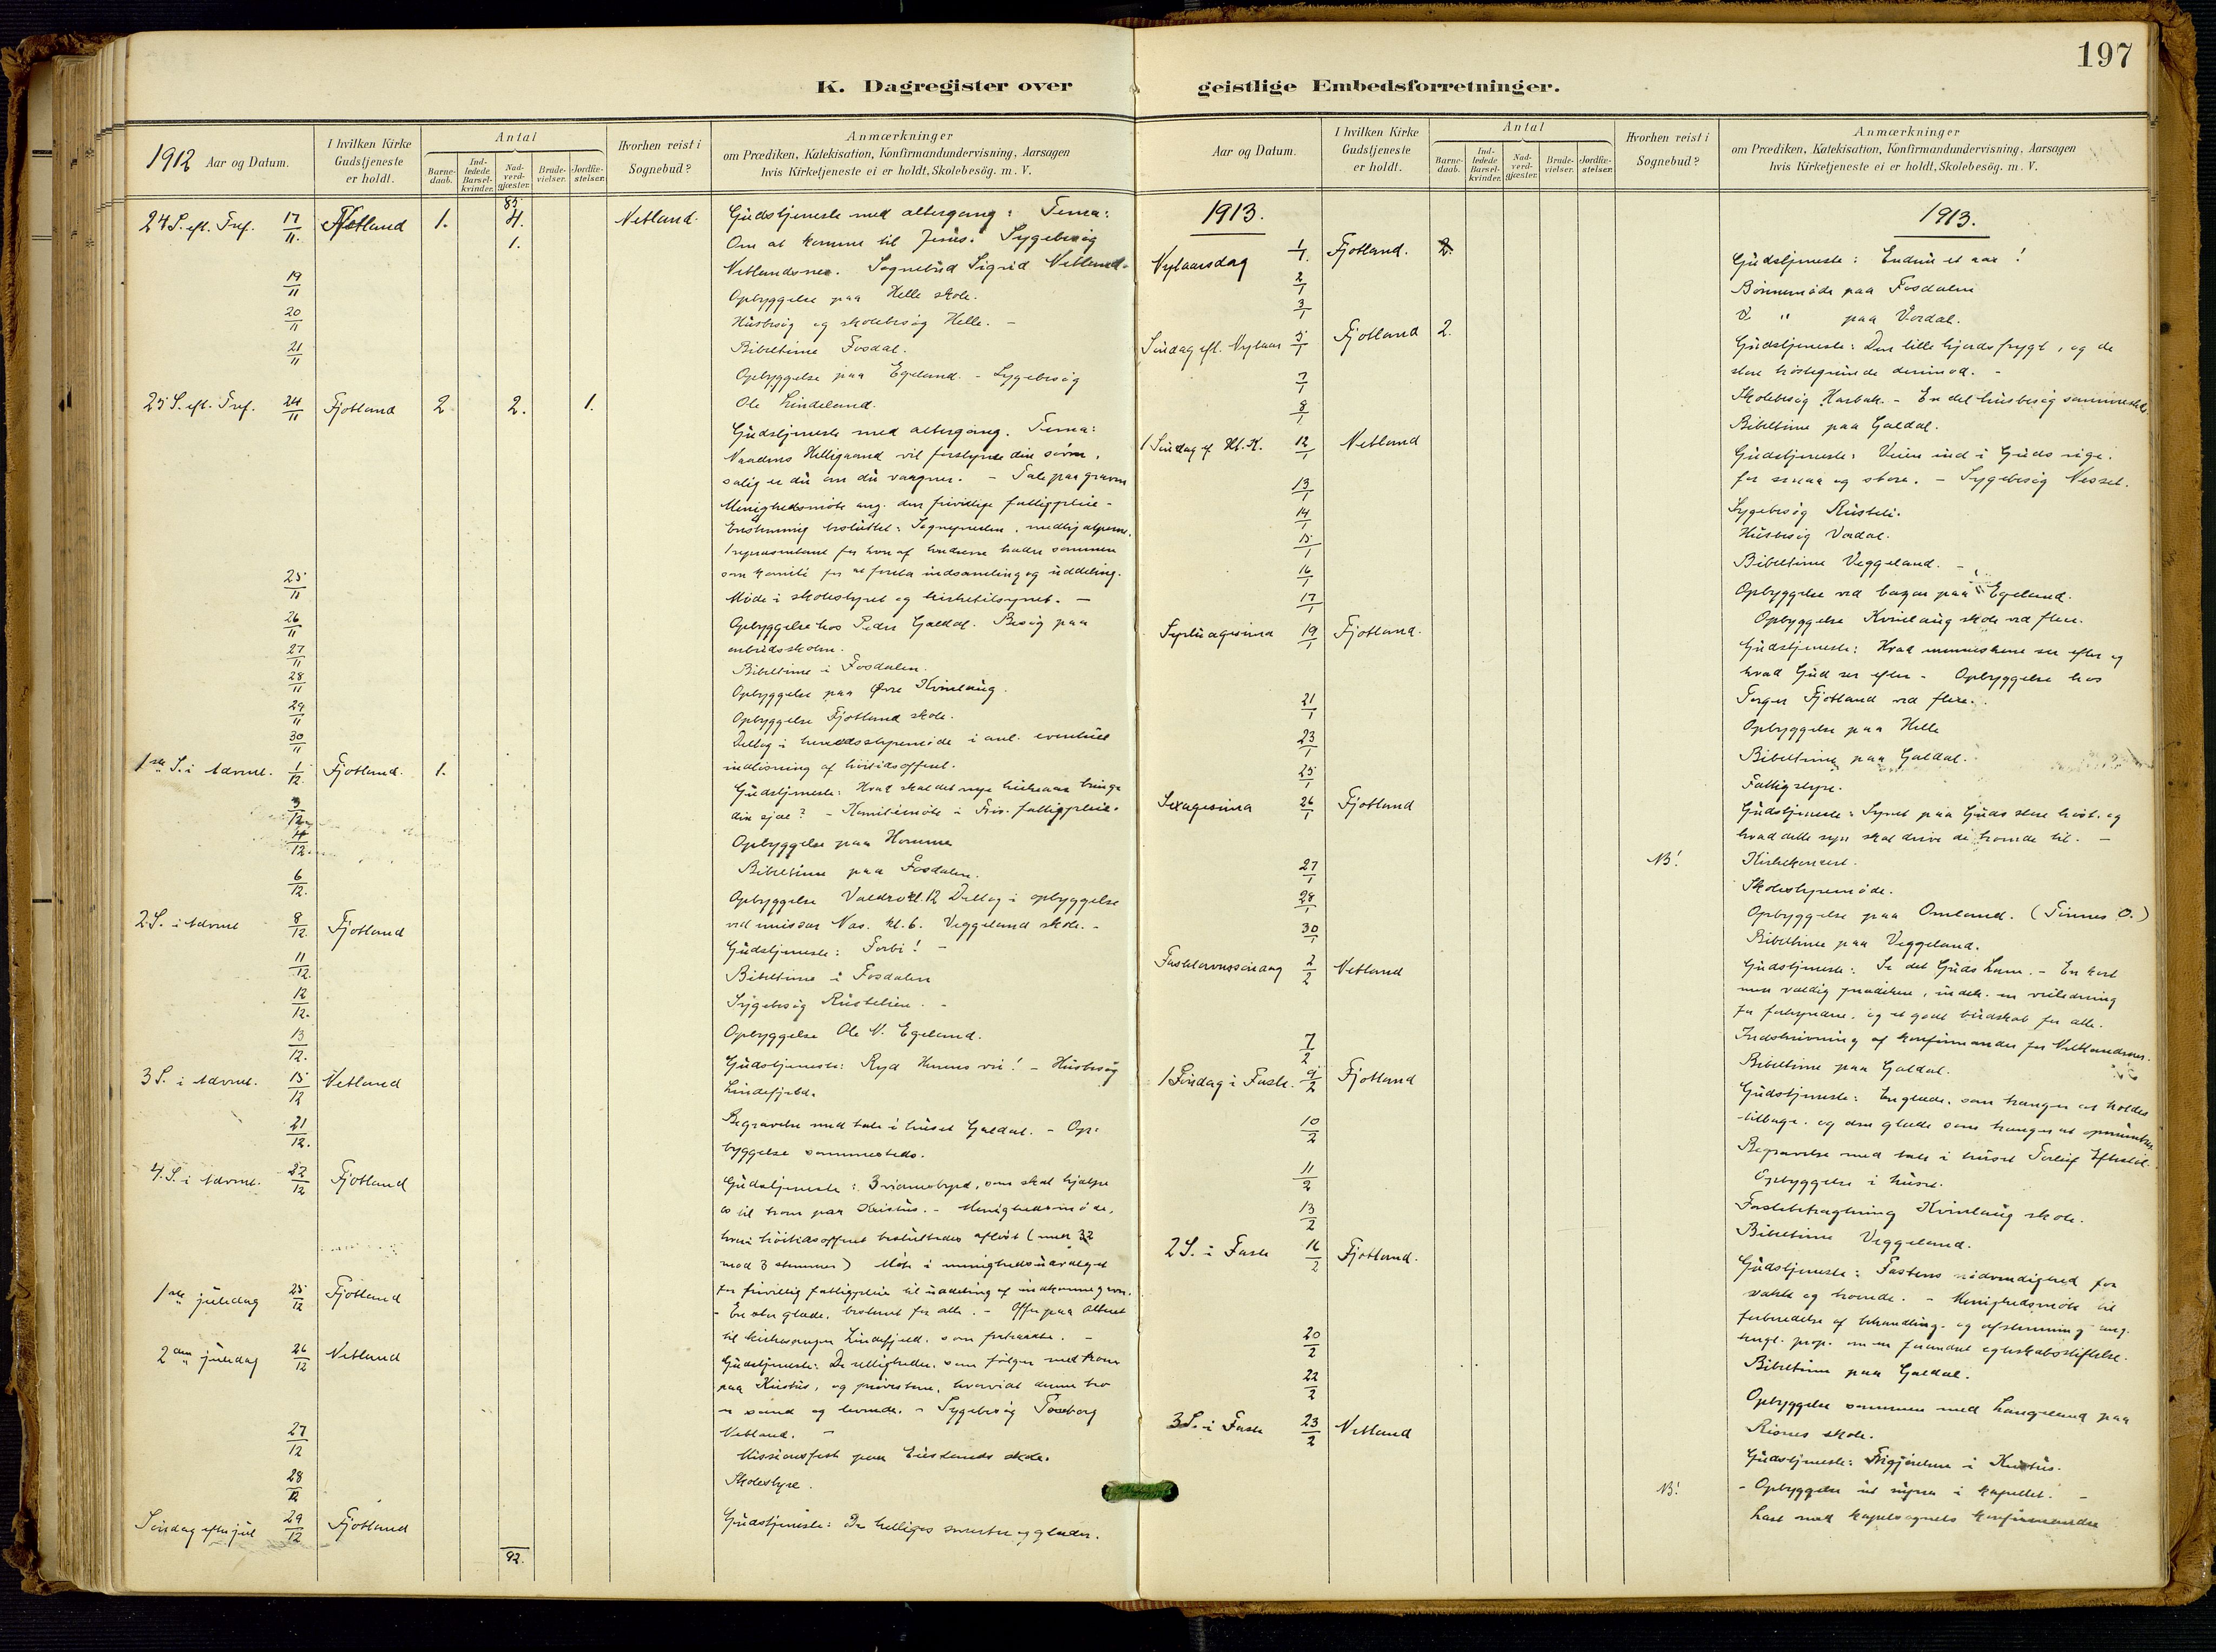 197
K. Dagregister over geistlige Embedsforretninger.
1912 Aar og Datum.
I hvilken Kirke Gudstjeneste er holdt.
Antal
Barnedaab.
Indledede Barselkvinder.
Nadverdgjæster.
Brudevielser.
Jordfæstelser.
Hvorhen reist i Sognebud?
Anmærkninger
om Prædiken, Katekisation, Konfirmandundervisning, Aarsagen
hvis Kirketjeneste ei er holdt, Skolebesög. m. V.
85
24 S. eft. Tref. 17/11. Netland 1. 4. Netland. Gudstjeneste med altergang: Tema:
1. Om at komme til Jesus. Sygebesøg
Netlandsnes. Sognebud Sigrid Netland.
19/11 Opbyggelse paa Helle skole.
20/11 Husbesøg og skolebesøg Helle. -
21/11 Bibeltime Fosdal.
Opbyggelse paa Egeland. - Sygebesøg
Ole Lindeland.
25 S. eft. Tref. 24/11 Fjotland 2 2. 1. Gudstjeneste med altergang. Tema:
Naadens Helligaand vil forstyrre din søvn,
salig er du om du vaagner. - Tale paa graven
Menighedsmøte ang. den frivillige fattigpleie -
Enstemmig besluttet: Sognepresten, medhjælperne,
som komité for at foreta indsamling og uddeling.
25/11 Møde i skolestyret og kirketilsynet. -
26/11 Opbyggelse hos Peder Galdal. Besøg paa
arbeidsskolen.
27/11 Bibeltime i Fosdalen.
28/11 Opbyggelse paa Øvre Kvinlaug.
29/11 Opbyggelse Fjotland skole.
30/11 Deltog i herredsstyremøde i anl. eventuel
indløsning af høitidsofferet.
1ste S. i Advent. 1/12. Fjotland. 1. Gudstjeneste: Hvad skal det nye kirkeaar bringe
din sjæl? - Komitémøte i Friv. fattigpleie.
3/12 Opbyggelse paa Homme
4/12. Bibeltime paa Fosdalen.
6/12. Opbyggelse kl. 12 Deltog i opbyggelse
kl. 6. Veggeland skole. -
2 S. i Advent 8/12. Fjotland Gudstjeneste: Forbi! -
11/12. Bibeltime i Fosdalen
12/12. Sygebesøg Rustelien. -
13/12. Opbyggelse Ole N. Egeland.
3 S. i Advent. 15/12 Netland Gudstjeneste: Ryd Herrens vei! - Husbesøg
Lindefjeld.
21/12. Begravelse med tale i huset Galdal. - Op-
byggelse sammesteds.
4. S. i Advent. 22/12 Fjotland Gudstjeneste: 3 vidnesbyrd, som skal hjælpe
os til troen paa Kristus. - Menighedsmøde,
hvori høitidsofferet besluttedes afløst (med 32
mod 3 stemmer) Møte i menighedsudvalget
for frivillig fattigpleie til uddeling af indkomne gaver.
1ste juledag 25/12 Fjotland - En stor glæde, bestemt for alle. - Offer paa alteret
til kirkesanger Lindefjeld, som fratraadte. -
2den juledag 26/12 Netland Gudstjeneste: De som følger med troen
paa Kristus, og prøvestene, hvorvidt denne tro
er sand og levende. - Sygebesøg
Netland. -
27/12 Missionsfest paa skole.
28/12 Skolestyre.
Søndag efter jul 29/12 Fjotland Gudstjeneste: De helliges smerter og glæder.
92.
Aar og Datum.
I hvilken Kirke Gudstjeneste er holdt.
Antal
Barnedaab.
Indledede Barselkvinder.
Nadverdgjæster.
Brudevielser.
Jordfæstelser.
Hvorhen reist i Sognebud?
Anmærkninger
om Prædiken, Katekisation, Konfirmandundervisning, Aarsagen
hvis Kirketjeneste ei er holdt, Skolebesög. m. V.
1913. 1913.
Nytaarsdag 1/1. Fjotland. 2. Gudstjeneste: Endnu et aar!
2/1 Børnemøde paa Fosdalen
3/1 " paa Vordal.
Søndag eft. Nytaar 5/1 Fjotland 2. Gudstjeneste: Den lille hjords frygt, og de
store trøstegrunde derimod. -
7/1 Skolebesøg Harbak. - En del husbesøg sammesteds.
8/1 Bibeltime paa Galdal.
1 Søndag ef. Hl. K. 12/1 Netland Gudstjeneste: Veien ind i Guds rige.
for smaa og store. - Sygebesøg Nesset.
13/1 Sygebesøg Rusteli.
14/1 Husbesøg Vordal.
15/1 Bibeltime Veggeland. -
16/1 Opbyggelse ved bazar paa Egeland.
17/1 Opbyggelse Kvinlaug skole ved flere.
Septuagesima 19/1 Fjotland. Gudstjeneste: Hvad menneskene ser efter og
hvad Gud ser efter - Opbyggelse hos
Torger Fjotland ved flere.
21/1 Opbyggelse paa Helle
23/1 Bibeltime paa Galdal.
25/1 Fattigstyre.
Sexagesima 26/1 Fjotland Gudstjeneste: Synet paa Guds store høst, og
hvad dette syn skal drive de troende til. -
NB! Kirkekoncert.
27/1 Skolestyremøde.
28/1 Opbyggelse paa Omland. (Tinnes O.)
30/1 Bibeltime paa Veggeland.
Fastelavnssøndag 2/2 Netland Gudstjeneste: Se det Guds Lam. - En kort
men vældig prædiken, indeh. en veiledning
for forkyndere, og et godt budskab for alle.
Indskrivning af konfirmander for Netlandsnes.
7/2 Bibeltime paa Galdal.
1 Søndag i Faste. 9/2 Fjotland Gudstjeneste: En glæde, som trænger at holdes
tilbage, og den glæde som trænger at opmuntres.
10/2 Begravelse med tale i huset Torleif
Opbyggelse i huset.
11/2 Fastebetragtning Kvinlaug skole.
13/2 Bibeltime Veggeland.
2 S. i Faste 16/2 Fjotland. Gudstjeneste: Fastens nødvendighed for
vakte og troende. - Menighedsmøte til
forberedelse af behandling og afstemning ang.
kngl. prop. om en forandret egteskabsstiftelse.
20/2 Bibeltime paa Galdal.
22/2 Opbyggelse sammen med Langeland paa
Risnes skole.
3 S. i Faste 23/2 Netland Gudstjeneste: Frigjørelsen i Kristus.
NB! - Opbyggelse i kapellet. -
Læst med kapelsognets konfirmander